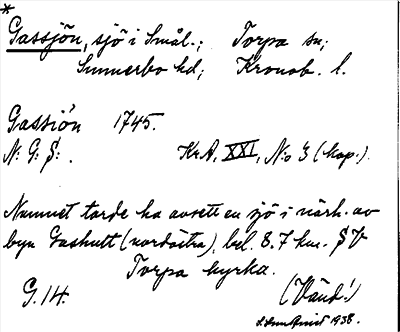 *
Gassjön, sjö i Smål.; Torpa sn;
Sunnerbo hd; Kronob. l.
Gassiön 1745.
N: G: S: . KrA, XXI, N:o 3 (kop.).
Namnet torde ha avsett en sjö i närh. av
byn Gashult (nordöstra), bel. 8.7 km. SV
Torpa kyrka.
G. 14. (Vänd!)
1938.